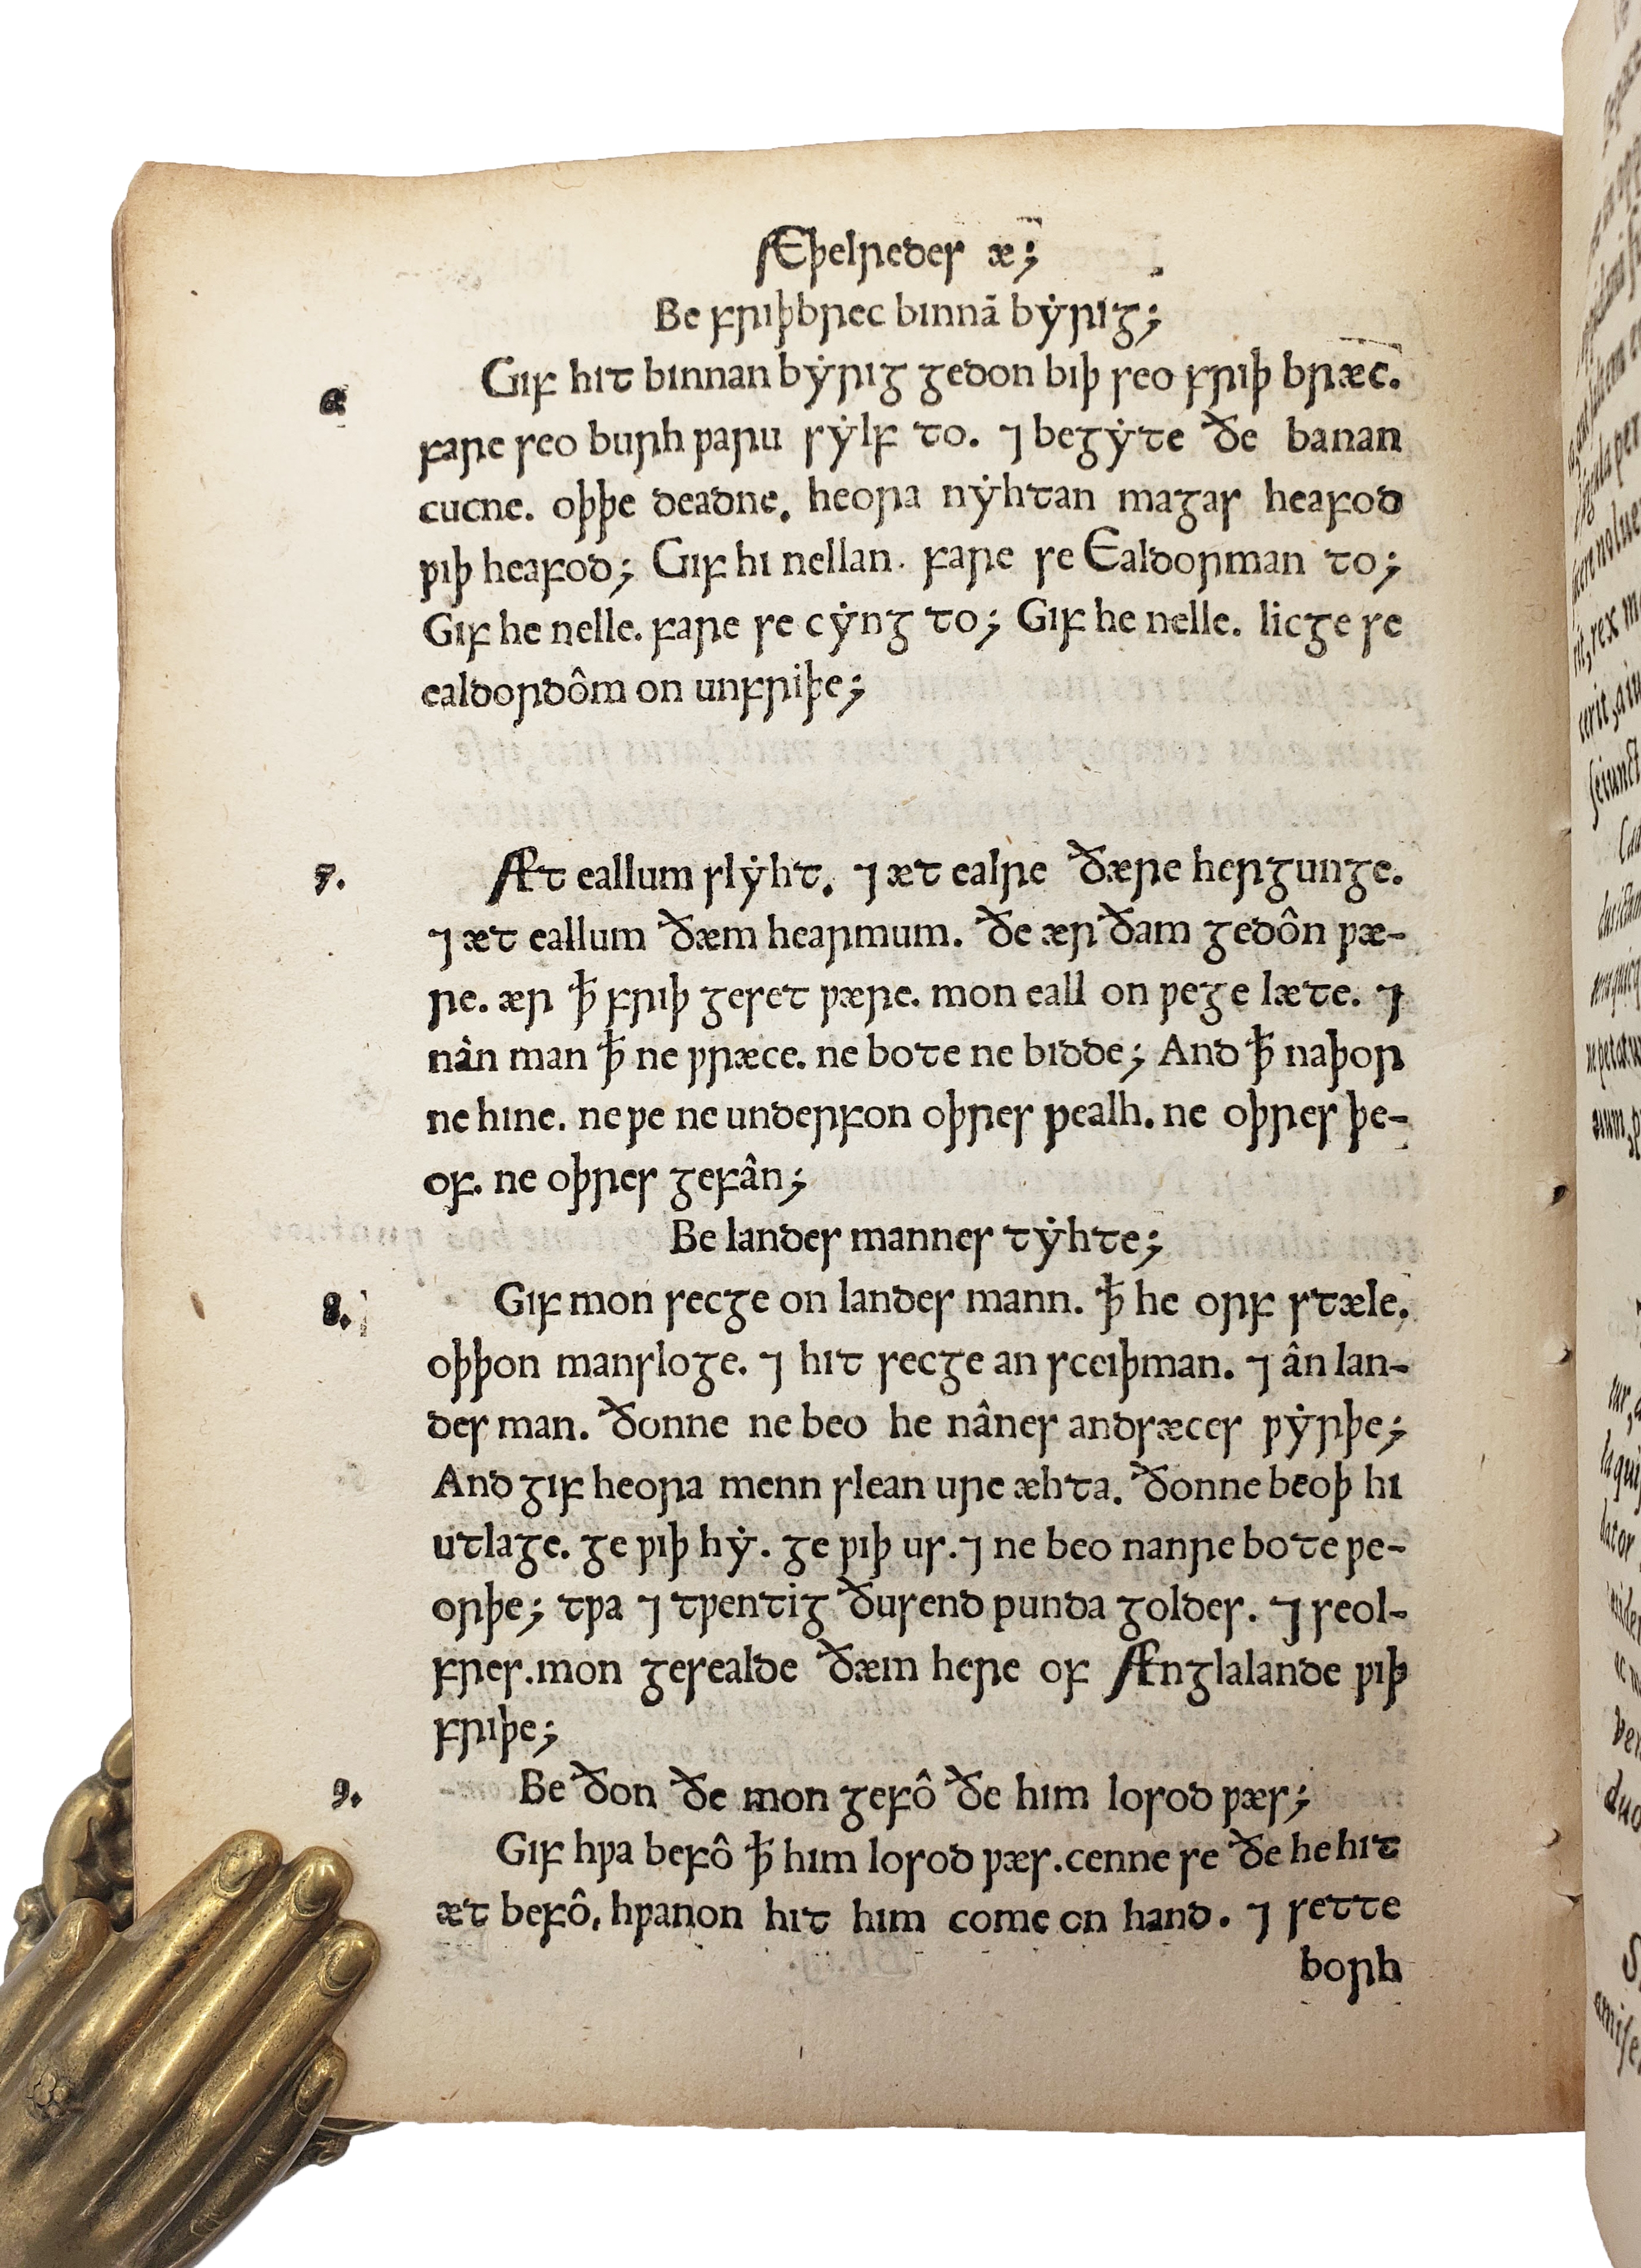 Æþelredes æ;
Be friþbrec binnā bẏrig;
6
Gif hit binnan bẏrig gedon biþ seo friþ bræc.
fare seo burh ƿaru sẏlf to. ⁊ begẏte ðe banan
cucne. oþþe deadne. heora nẏhtan magas heafod
ƿiþ heafod; Gif hi nellan. fare se Ealdorman to;
Gif he nelle. fare se cẏng to; Gif he nelle. licge se
ealdordôm on unfriþe;
7.
Æt eallum slẏht. ⁊ æt ealre ðære hergunge.
⁊ æt eallum ðæm hearmum. ðe ær ðam gedôn ƿæ-
re. ær ꝥ friþ geset ƿære. mon eall on ƿege læte. ⁊
nân man ꝥ ne ƿræce. ne bote ne bidde; And ꝥ naþor
ne hine. ne ƿe ne underfon oþres ƿealh. ne oþres þe-
of. ne oþres gefân;
Be landes mannes tẏhte;
8.
Gif mon secge on landes mann. ꝥ he orf stæle.
oþþon mansloge. ⁊ hit secge an sceiþman. ⁊ ân lan-
des man. ðonne ne beo he nânes andsæces ƿẏrþe;
And gif heora menn slean ure æhta. ðonne beoþ hi
utlage. ge ƿiþ hẏ. ge ƿiþ us. ⁊ ne beo nanre bote ƿe-
orþe; tƿa ⁊ tƿentig ðusend punda goldes. ⁊ seol-
fres. mon gesealde ðæm here of Ænglalande ƿiþ
friþe;
9.
Be ðon ðe mon gefô ðe him losod ƿæs;
Gif hƿa befô ꝥ him losod ƿæs. cenne se ðe he hit
æt befô. hƿanon hit him come on hand. ⁊ sette
borh